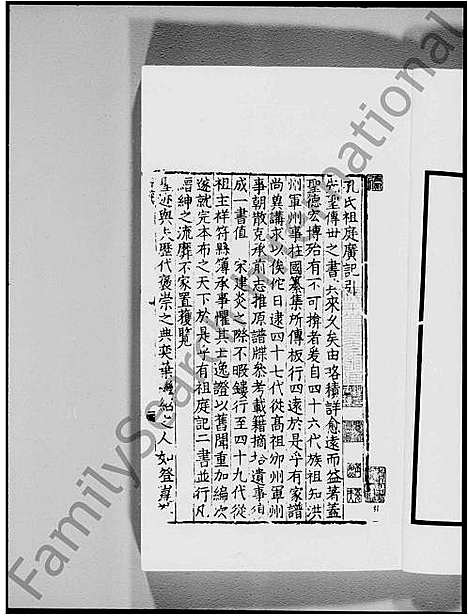 孔氏祖庭廣記引
先聖傳世之書其來久矣由略積詳愈遠而益著蓋
聖德宏博殆有不可揜者爰自四十六代族祖知洪
州軍州事柱國纂集所傳板行四遠於是乎有家譜
尚冀講求以俟佗日逮四十七代從高祖邠州軍州
事朝散克承前志推原譜牒參考載籍摘拾遺事
成一書值 宋建炎之際不暇鏤行至四十九代從
祖主祥符縣簿承事懼其亡逸證以舊聞重加編次
遂就完本布之天下於是乎有祖庭記二書並行凡
縉紳之流靡不家置獲覽
聖迹與夫歷代褒崇之典奕葉 之人如登
FamilySearch International